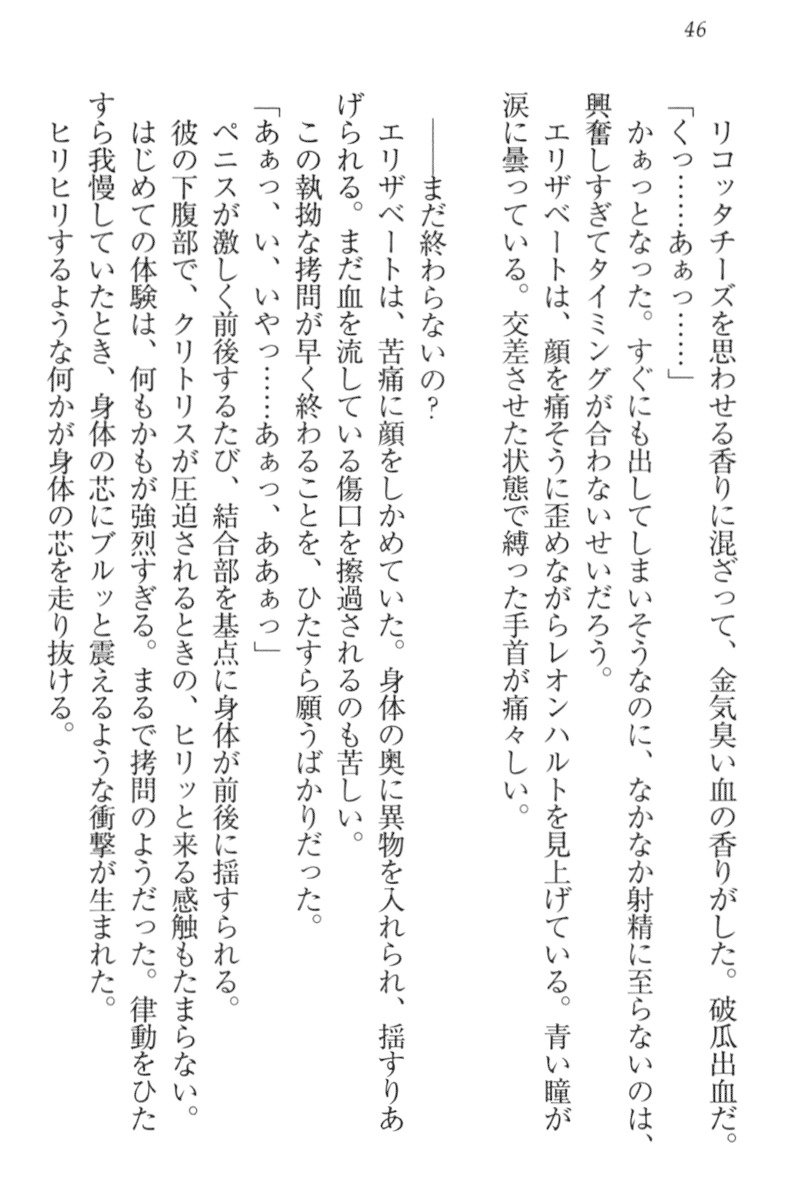 46
リコッタチーズを思わせる香りに混ざって、金気臭い血の香りがした。破瓜出血だ。
「くっ……あぁっ……」
かぁっとなった。すぐにも出してしまいそうなのに、なかなか射精に至らないのは、
興奮しすぎてタイミングが合わないせいだろう。
エリザベートは、顔を痛そうに歪めながらレオンハルトを見上げている。青い瞳が
涙に曇っている。交差させた状態で縛った手首が痛々しい。
――まだ終わらないの？
エリザベートは、苦痛に顔をしかめていた。身体の奥に異物を入れられ、揺すりあ
げられる。まだ血を流している傷口を擦過されるのも苦しい。
この執拗な拷問が早く終わることを、ひたすら願うばかりだった。
「あぁっ、い、いやっ……あぁっ、ああぁっ」
ペニスが激しく前後するたび、結合部を基点に身体が前後に揺すられる。
彼の下腹部で、クリトリスが圧迫されるときの、ヒリッと来る感触もたまらない。
はじめての体験は、何もかもが強烈すぎる。まるで拷問のようだった。律動をひた
すら我慢していたとき、身体の芯にブルッと震えるような衝撃が生まれた。
ヒリヒリするような何かが身体の芯を走り抜ける。